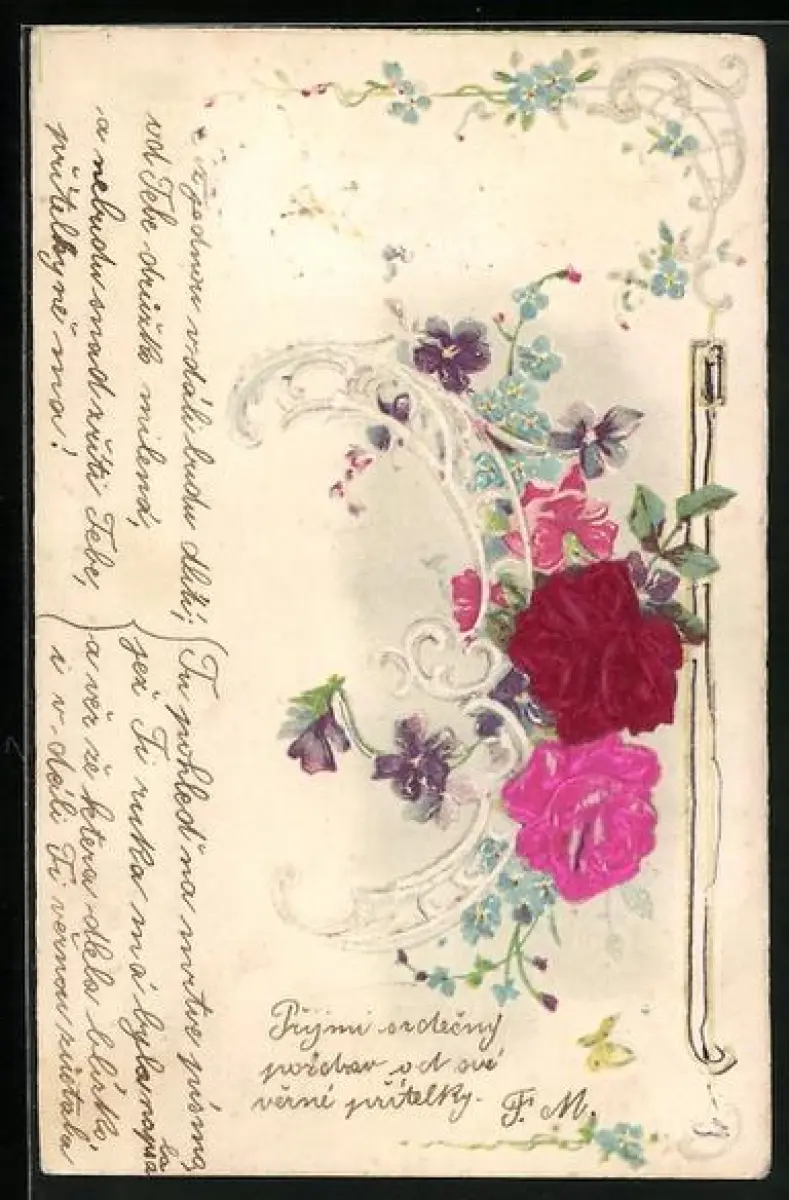 Až jednou v dáli budu dlíti,
od Tebe družko milená,
a nebudu snad zříti Tebe,
přítelkyně má!
Tu pohleď na mrtvé písmo,
jež Ti ruka má byla napsala
a věř že ktera dlela blízko,
i v dáli Ti věrnou zůstala
Přijmi srdečný
pozdrav od své
věrné přítelky. F. M.